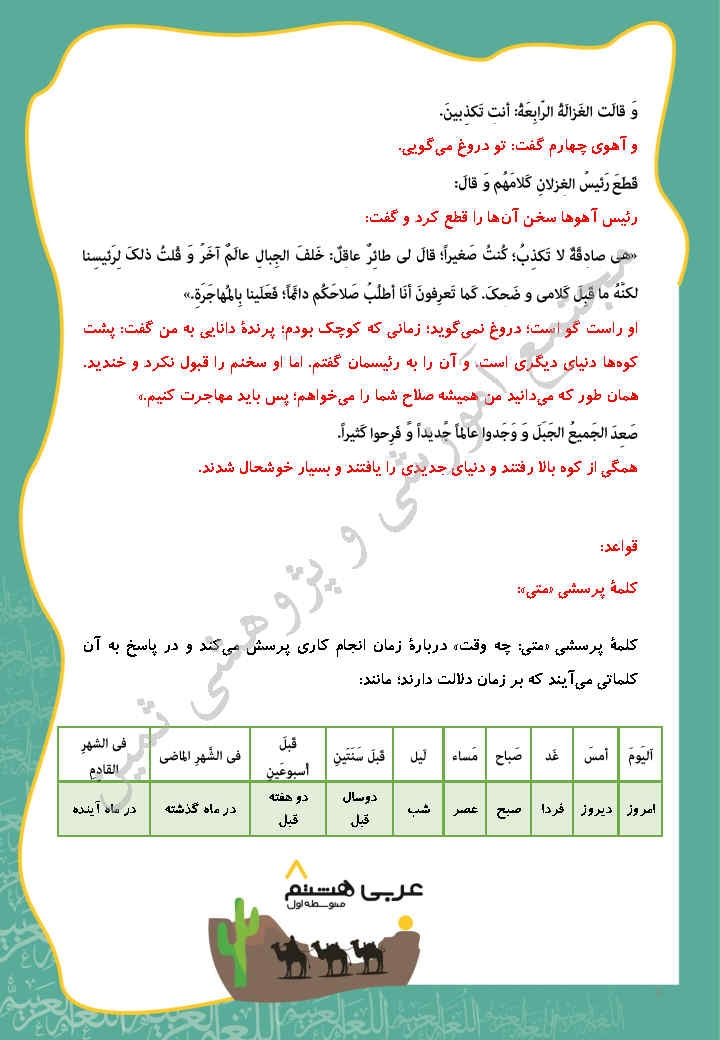 وَ قالَت الغَزالَةُ الرّابِعَةُ: أنتِ تَکذِبینَ.
و آهوی چهارم گفت: تو دروغ می‌گویی.
قَطَعَ رَئیسُ الغِزلانِ کَلامَهُم وَ قالَ:
رئیس آهوها سخن آن‌ها را قطع کرد و گفت:
«هی صادِقَةٌ لا تَکذِبُ؛ کُنتُ صَغیراً؛ قالَ لی طائِرٌ عاقِلٌ: خَلفَ الجِبالِ عالَمٌ آخَرُ وَ قُلتُ ذلکَ لِرَئیسِنا
لکنّهُ ما قَبِلَ کَلامی و ضَحِکَ. کَما تَعرِفونَ أنَا أطلُبُ صَلاحَکُم دائِماً؛ فَعَلَینا بِالمُهاجَرَةِ.»
او راست گو است؛ دروغ نمی‌گوید؛ زمانی که کوچک بودم؛ پرندهٔ دانایی به من گفت: پشت
کوه‌ها دنیای دیگری است. و آن را به رئیسمان گفتم. اما او سخنم را قبول نکرد و خندید.
همان طور که می‌دانید من همیشه صلاح شما را می‌خواهم؛ پس باید مهاجرت کنیم.»
صَعِدَ الجَمیعُ الجَبَلَ وَ وَجَدوا عالَماً جَدیداً وَ فَرِحوا کَثیراً.
همگی از کوه بالا رفتند و دنیای جدیدی را یافتند و بسیار خوشحال شدند.
قواعد:
کلمهٔ پرسشی «متی»:
کلمهٔ پرسشی «متی: چه وقت» دربارهٔ زمان انجام کاری پرسش می‌کند و در پاسخ به آن
کلماتی می‌آیند که بر زمان دلالت دارند؛ مانند:
اَلیَومَ أمسَ غَد صَباح مَساء لَیل قَبلَ سَنَتَینِ قَبلَ أسبوعَینِ فی الشَّهرِ الماضی فی الشهرِ القادِمِ
امروز دیروز فردا صبح عصر شب دوسال قبل دو هفته قبل در ماه گذشته در ماه آینده
عربی هشتم
متوسطه اول
مجتمع آموزشی و پژوهشی ثمین